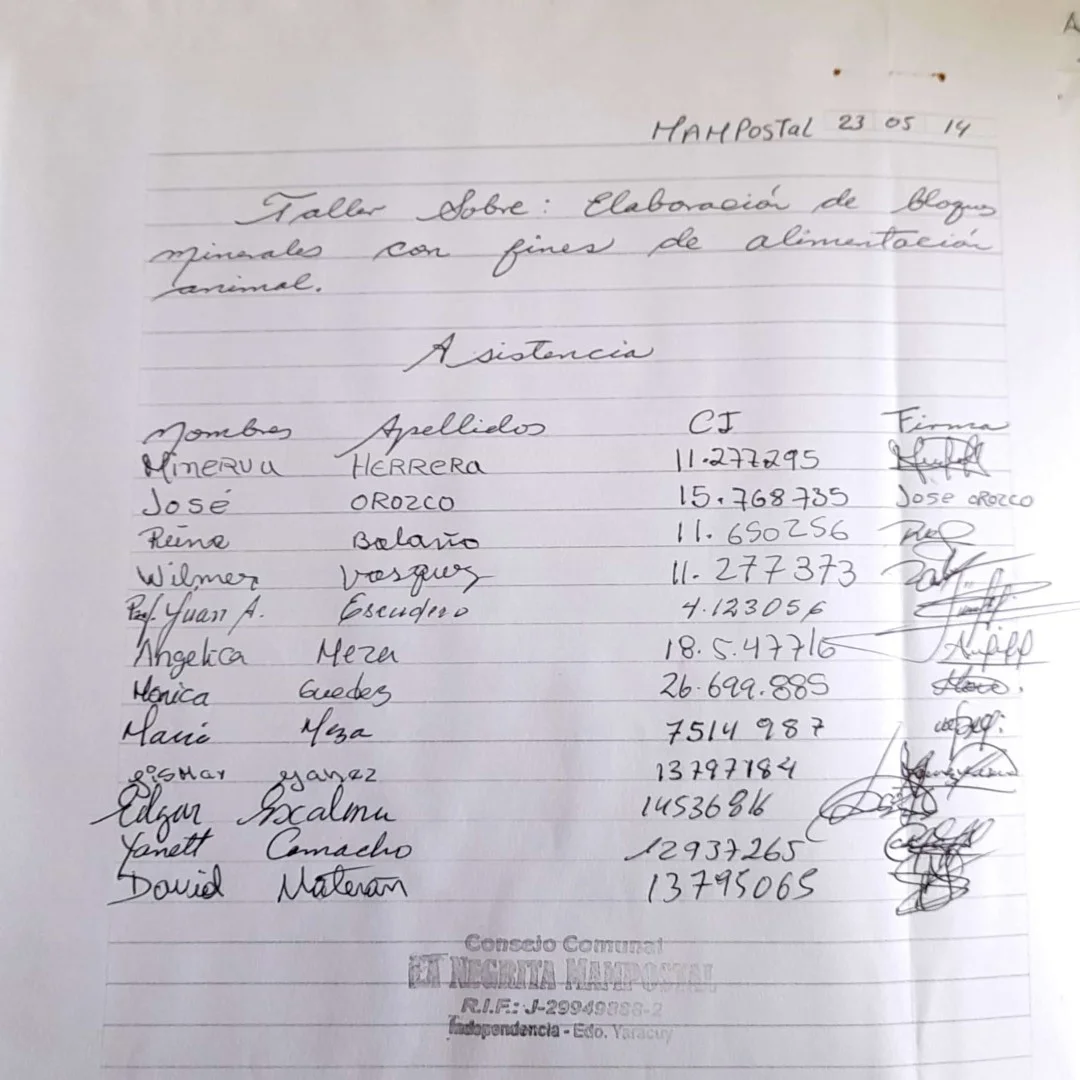 MAMPOSTAL 23 05 14
Taller Sobre: Elaboración de bloques
minerales con fines de alimentación
animal.
Asistencia
Nombres Apellidos CI Firma
MINERVA HERRERA 11.277295
José OROZCO 15.768735 Jose OROZCO
Reina Bolaño 11.650256
Wilmer Vasquez 11.277373
Prof. Yuan A. Escudero 4.123056
Angelica Meza 18.5.47716
Monica Guedez 26.699.885
María Meza 7514 987
yanez 13797184
Edgar Escalona 14536816
Yanett Camacho 12937265
David Materan 13795065
Consejo Comunal
LA NEGRITA MAMPOSTAL
R.I.F.: J-29949888-2
Independencia - Edo. Yaracuy